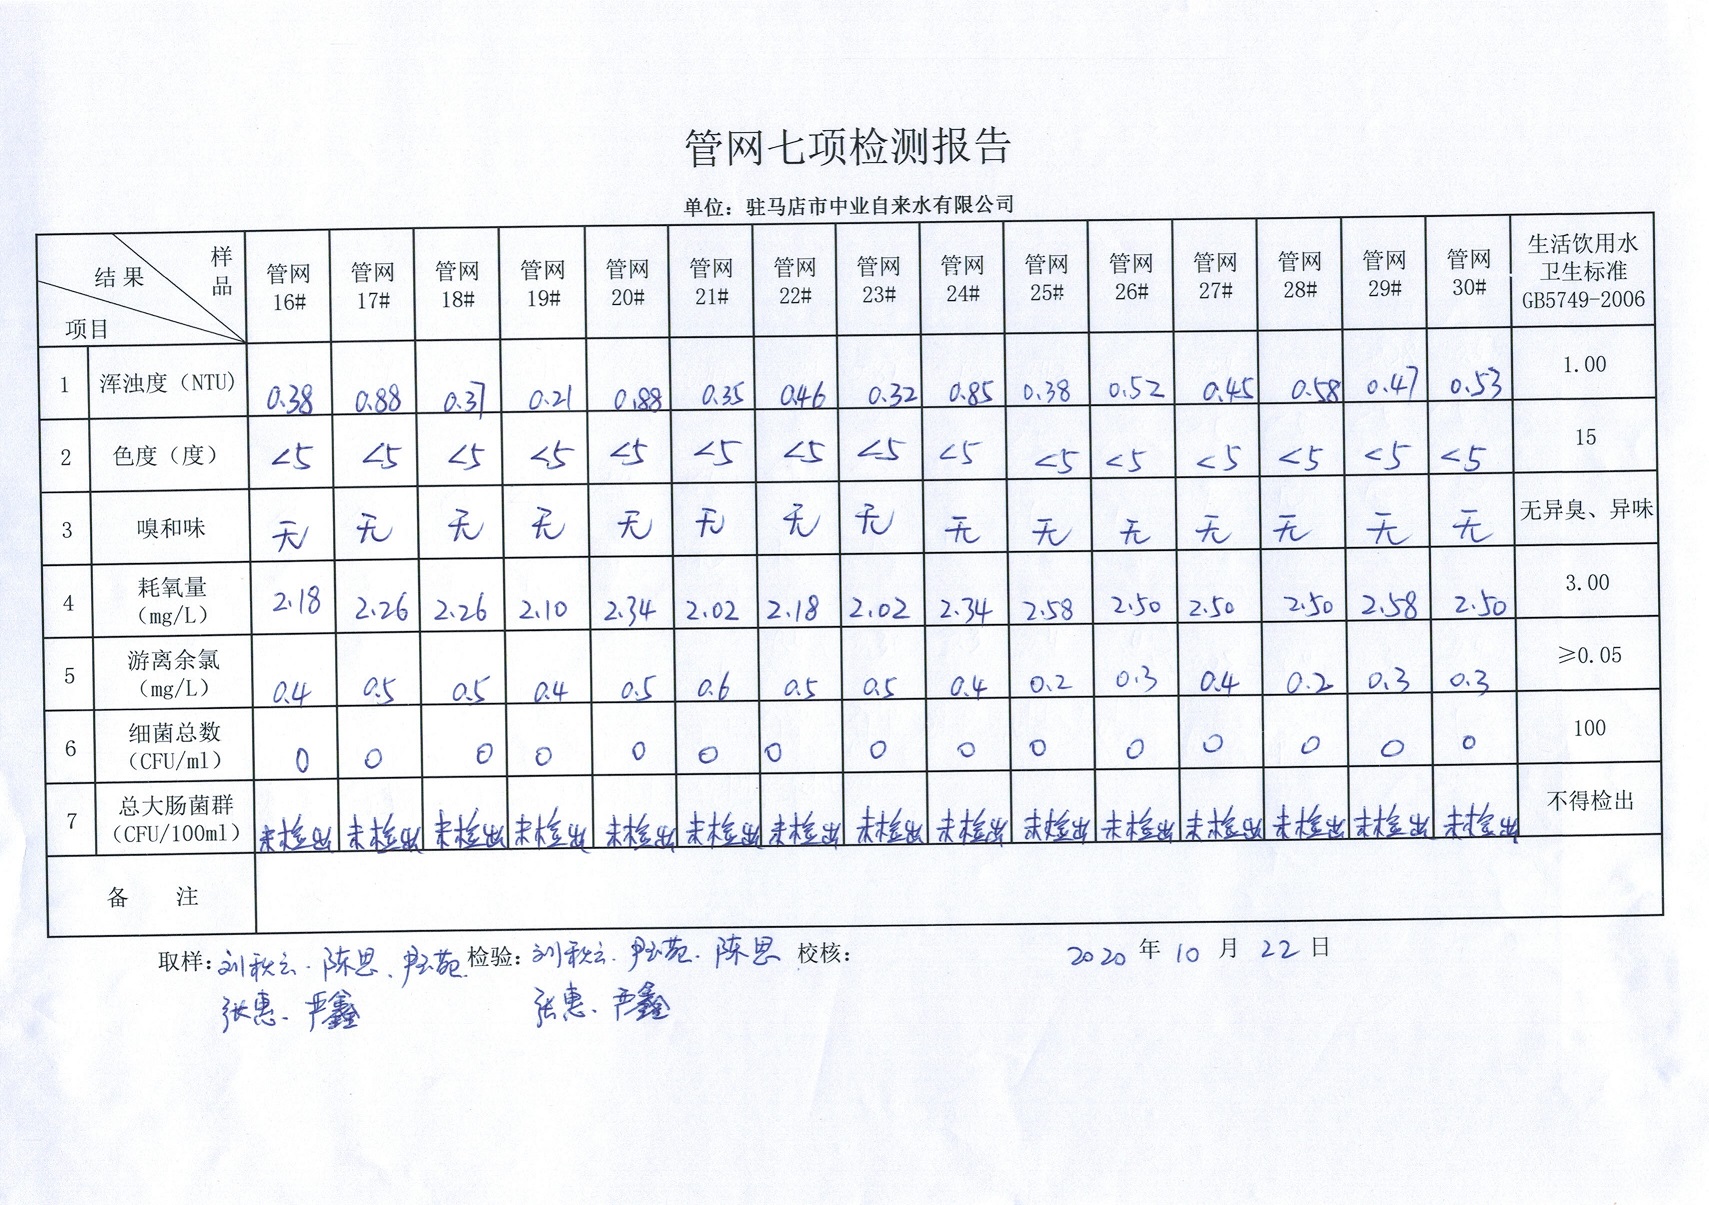 管网七项检测报告
单位：驻马店市中业自来水有限公司
项目 结果 样品 管网16# 管网17# 管网18# 管网19# 管网20# 管网21# 管网22# 管网23# 管网24# 管网25# 管网26# 管网27# 管网28# 管网29# 管网30# 生活饮用水卫生标准GB5749-2006
1 浑浊度（NTU） 0.38 0.88 0.37 0.21 0.88 0.35 0.46 0.32 0.85 0.38 0.52 0.45 0.58 0.47 0.53 1.00
2 色度（度） <5 <5 <5 <5 <5 <5 <5 <5 <5 <5 <5 <5 <5 <5 <5 15
3 嗅和味 无 无 无 无 无 无 无 无 无 无 无 无 无 无 无 无异臭、异味
4 耗氧量（mg/L） 2.18 2.26 2.26 2.10 2.34 2.02 2.18 2.02 2.34 2.58 2.50 2.50 2.50 2.58 2.50 3.00
5 游离余氯（mg/L） 0.4 0.5 0.5 0.4 0.5 0.6 0.5 0.5 0.4 0.2 0.3 0.4 0.2 0.3 0.3 ≥0.05
6 细菌总数（CFU/ml） 0 0 0 0 0 0 0 0 0 0 0 0 0 0 0 100
7 总大肠菌群（CFU/100ml） 未检出 未检出 未检出 未检出 未检出 未检出 未检出 未检出 未检出 未检出 未检出 未检出 未检出 未检出 未检出 不得检出
备 注
取样：刘秋云、陈思、尹玉苑 检验：刘秋云、尹玉苑、陈思 校核： 2020 年 10 月 22 日
张惠、严鑫 张惠、严鑫